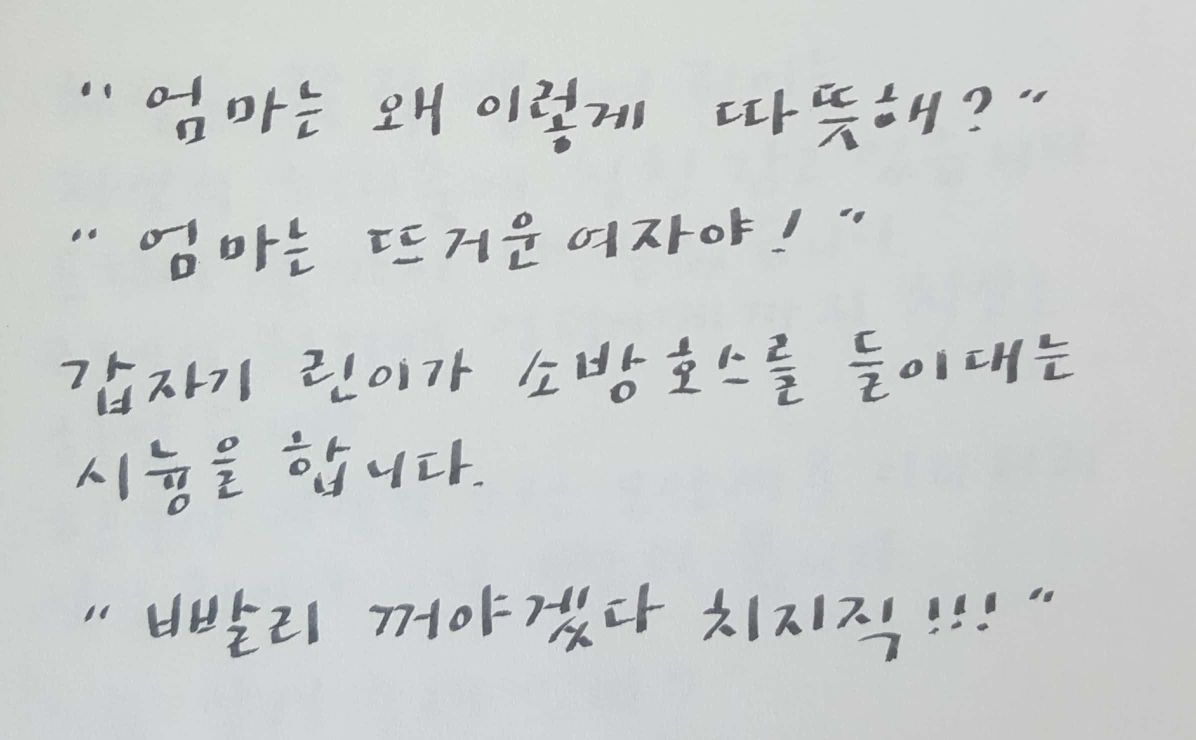 "엄마는 왜 이렇게 따뜻해?"
"엄마는 뜨거운 여자야!"
갑자기 린이가 소방호스를 들이대는
시늉을 합니다.
"빨리 꺼야겠다 치지직!!!"